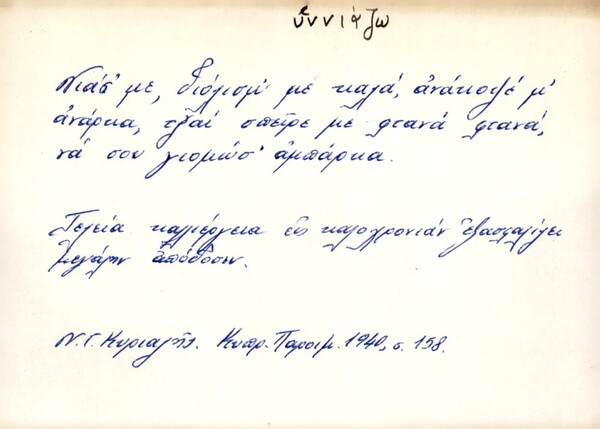 ὑννιάζω
Νιάσ' με, διόλισμ' με καλά, ἀνάκοψέ μ'
ἀνάρκα, τζαί σπεῖρε με φτανά φτανά,
νά σου γιομώσ' ἀμπάρκα.
Τελεία καλλιέργεια εἰς καλοχρονιάν ἐξασφαλίζει
μεγάλην ἀπόδοσιν.
Ν. Γ. Κυριαζῆς. Κυπρ. Παροιμ. 1940, σ. 158.